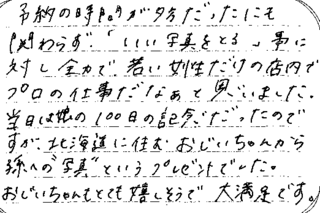 予約の時間が夕方だったにも
関わらず、「いい写真をとる」事に
対し全力で、若い女性だけの店内で
プロの仕事だなぁと思いました。
当日は娘の100日の記念だったので
すが、北海道に住むおじいちゃんから
孫への"写真"というプレゼントでした。
おじいちゃんもとても嬉しそうで大満足です。